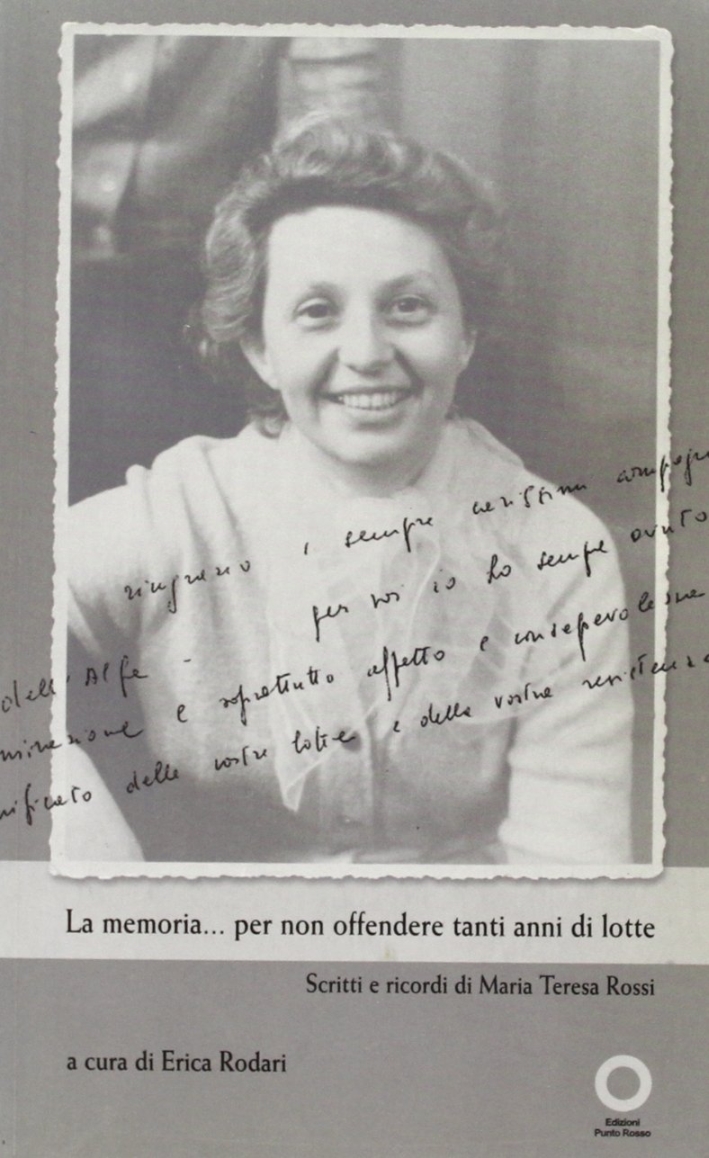 ringrazio i sempre carissimi compagni
dell'Alfa - per voi io ho sempre avuto
e soprattutto affetto e consapevolezza
delle vostre lotte e della vostra resistenza
La memoria... per non offendere tanti anni di lotte
Scritti e ricordi di Maria Teresa Rossi
a cura di Erica Rodari
Edizioni
Punto Rosso